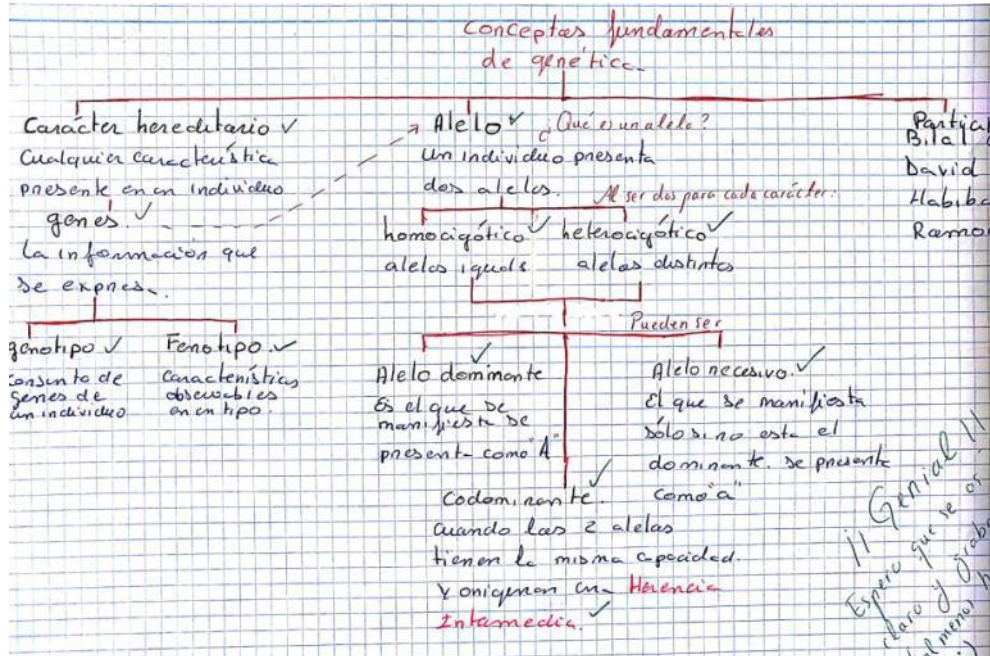 Conceptos fundamentales
de genética
Carácter hereditario
Cualquier característica
presente en un individuo
genes.
La información que
se expresa.
genotipo
Conjunto de
genes de
un individuo
Fenotipo.
Características
observables
en un tipo.
Alelo ¿Qué es un alelo?
Un individuo presenta
dos alelos.
Al ser dos para cada carácter:
homocigótico
alelos iguals
heterocigótico
alelos distintos
Pueden ser
Alelo dominante
Es el que se
manifiesta se
present como "A"
Alelo recesivo.
El que se manifiesta
sólo si no esta el
dominante. se presente
como "a"
Codominante.
Cuando las 2 alelas
tienen la misma capacidad.
Y originan una Herencia
Intermedia.
Bilal
David
Habiba
Ramo
¡¡Genial!!
Espero que se os
claro y